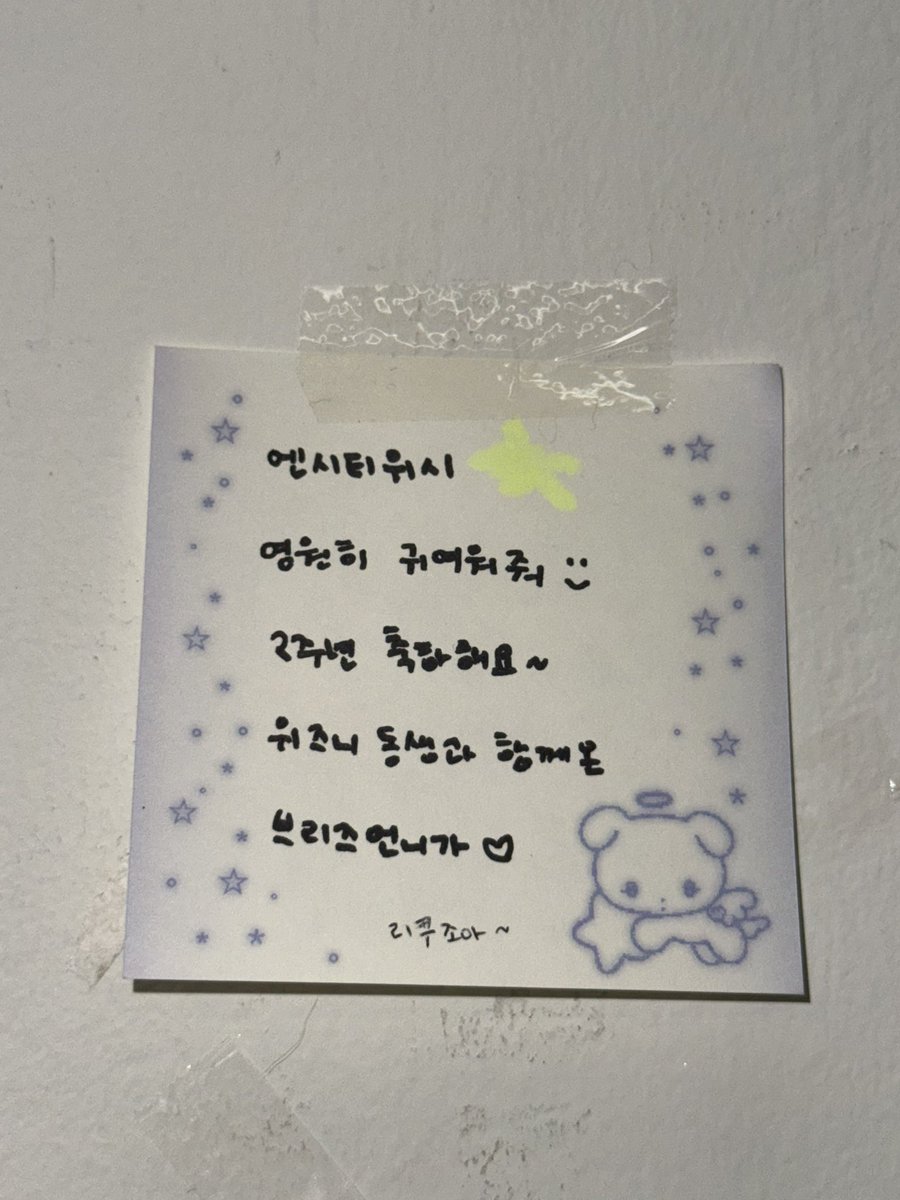 엔시티위시
영원히 귀여워줘
2주년 축하해요~
위즈니 동생과 함께온
브리즈언니가 ♡
리쿠조아~